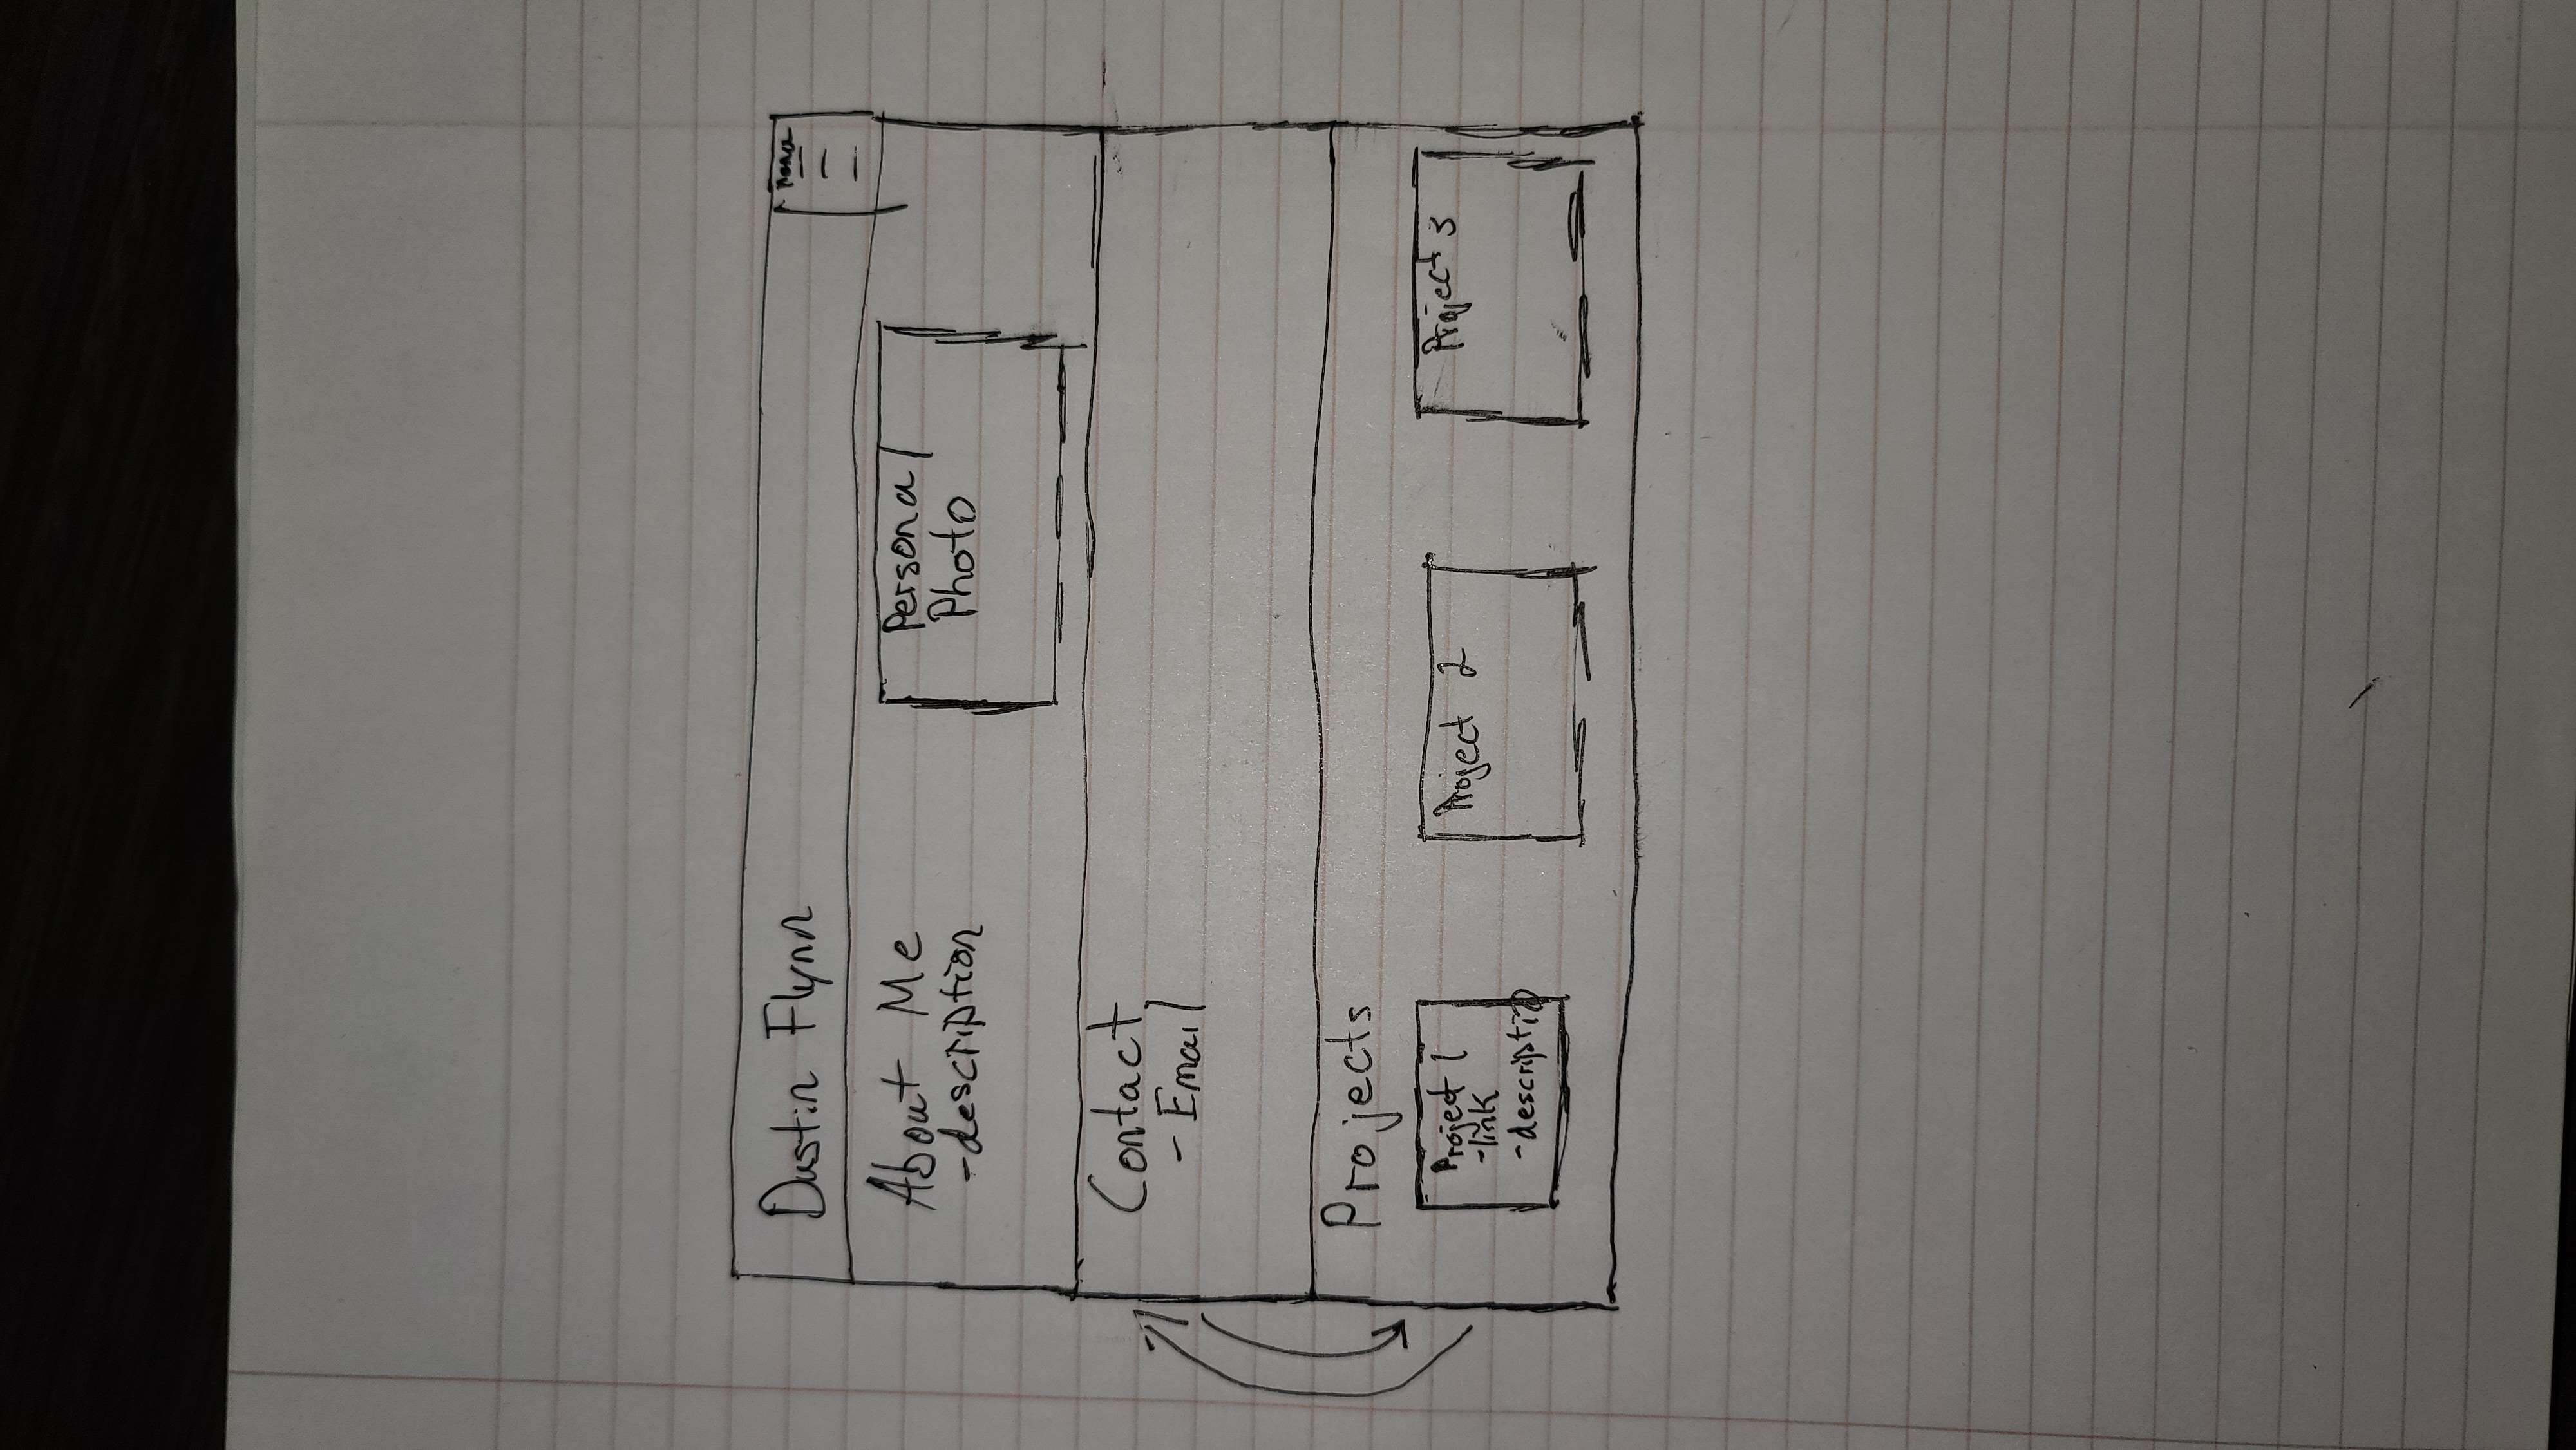 Dustin Flynn
Menu
About Me
-description
Personal
Photo
Contact
- Email
Projects
Project 1
-link
-description
Project 2
Project 3